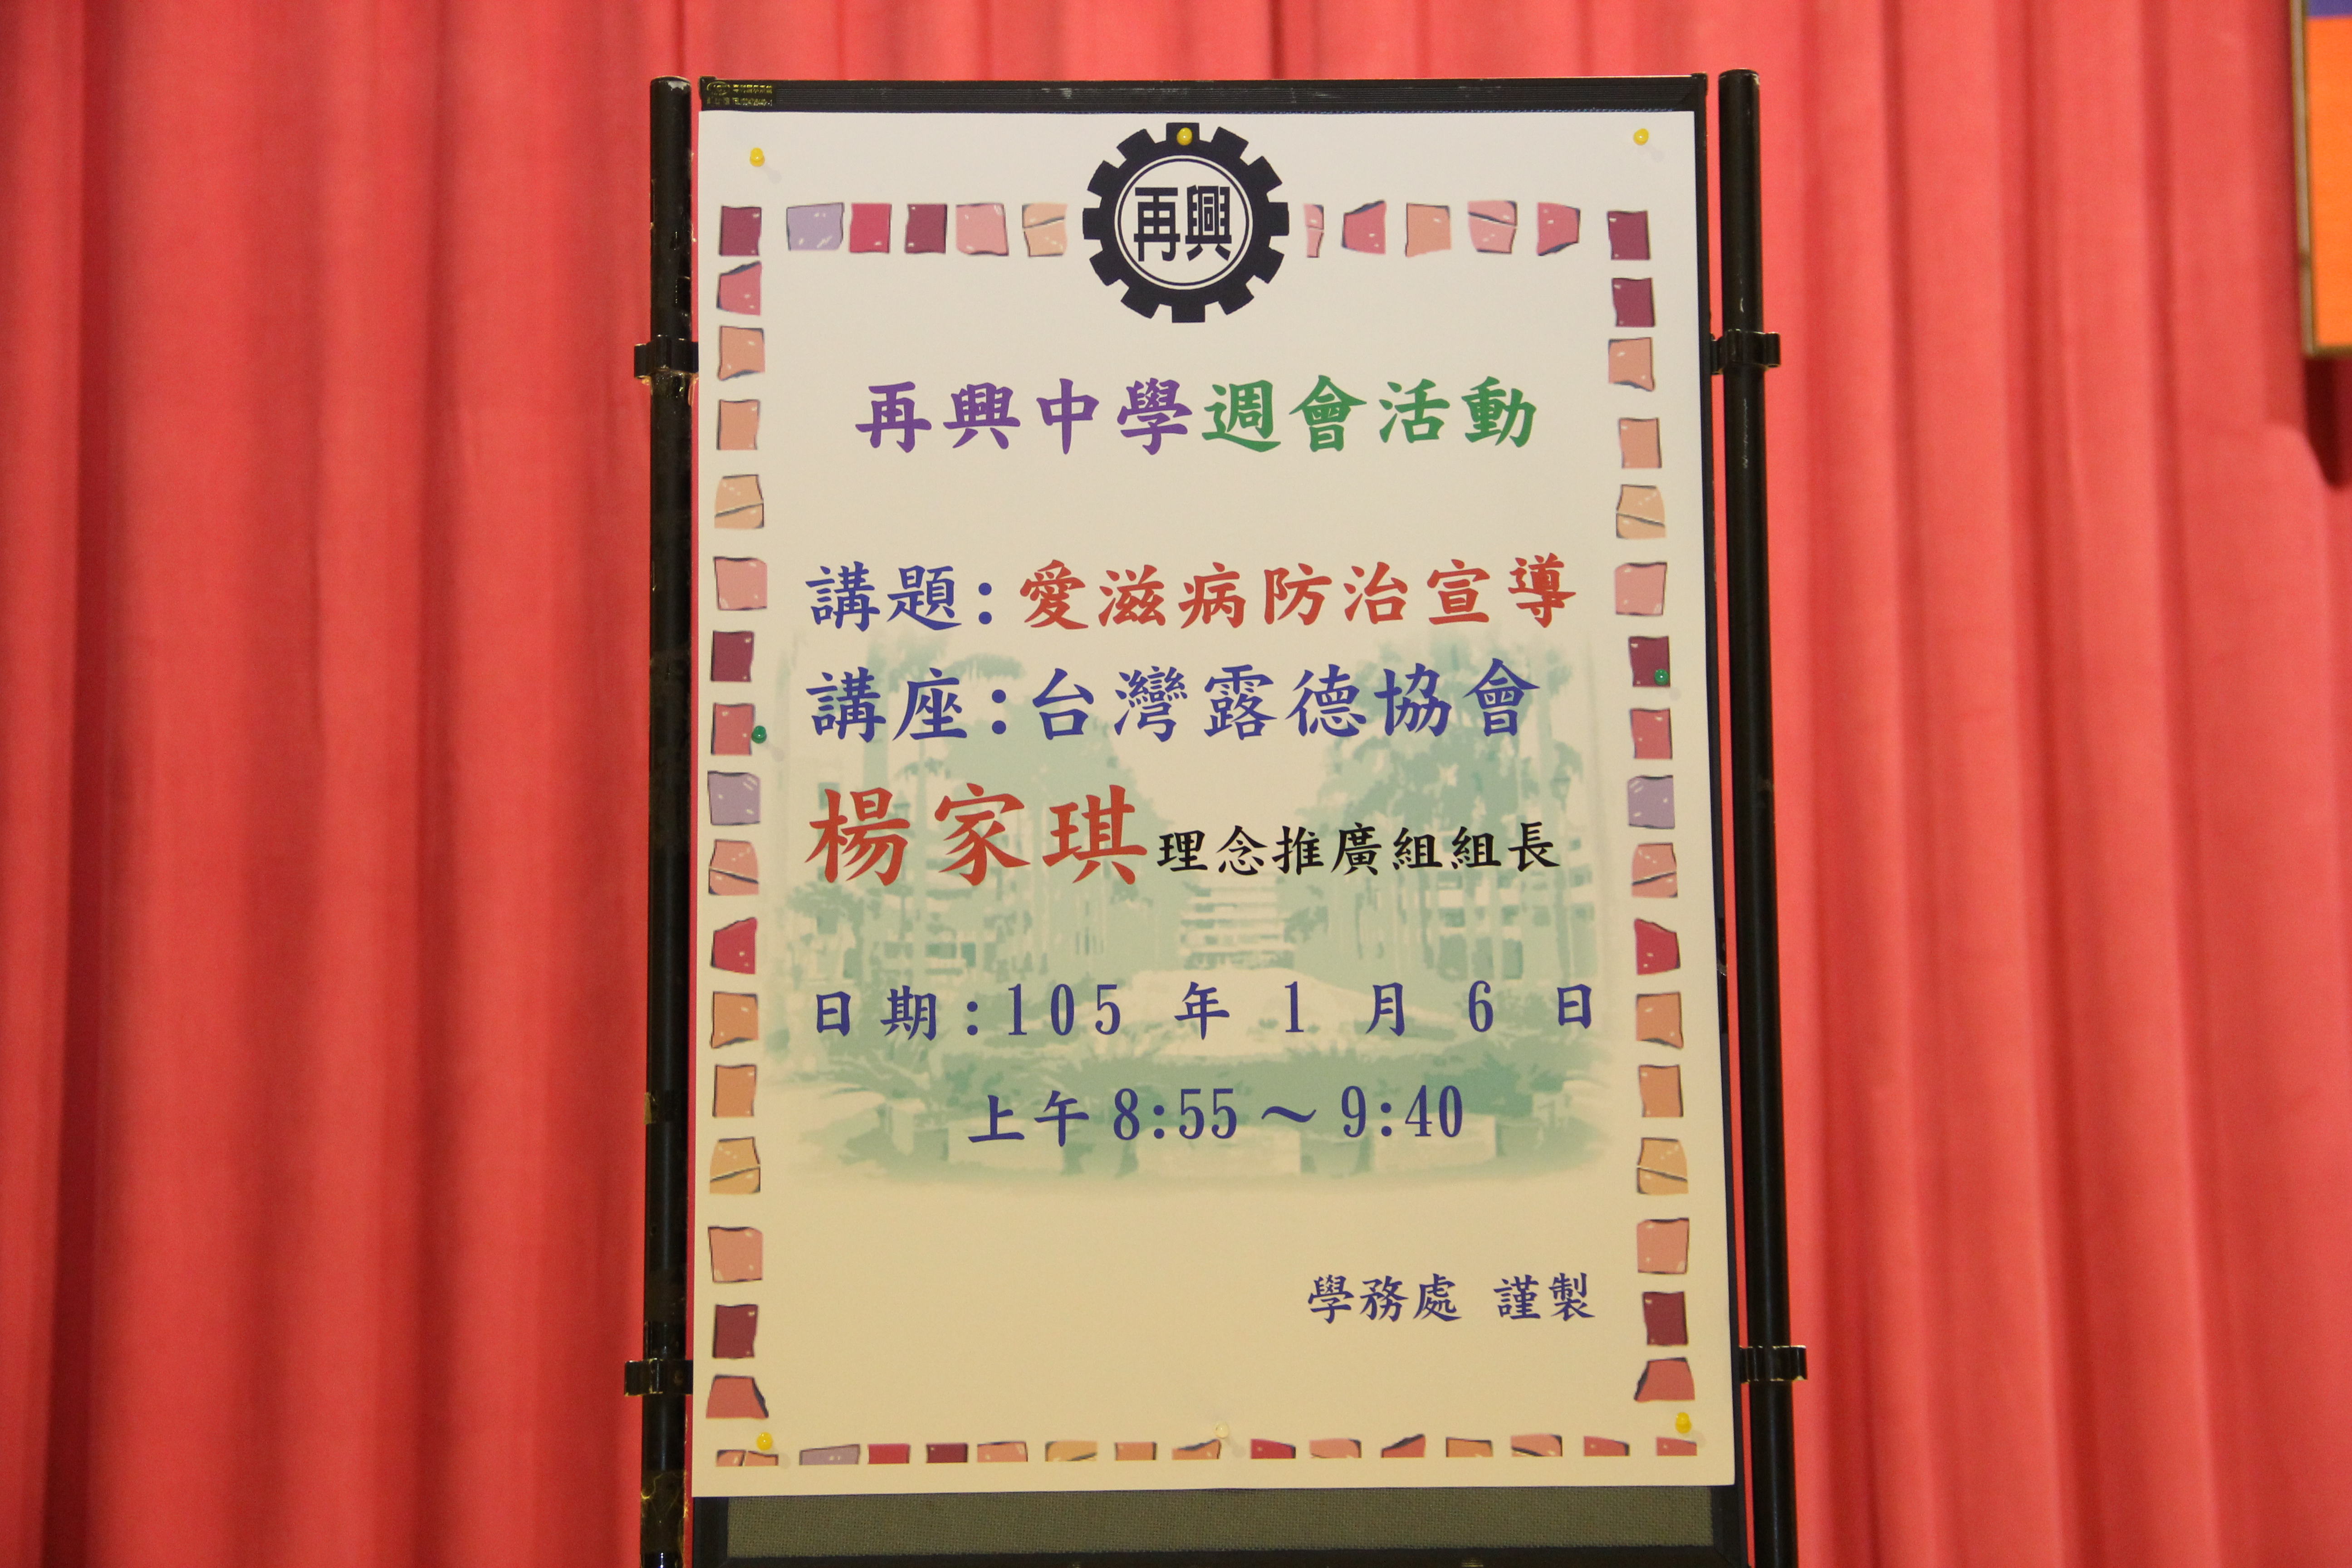 再興
再興中學週會活動
講題:愛滋病防治宣導
講座:台灣露德協會
楊家琪理念推廣組組長
日期:105 年 1 月 6 日
上午8:55～9:40
學務處 謹製